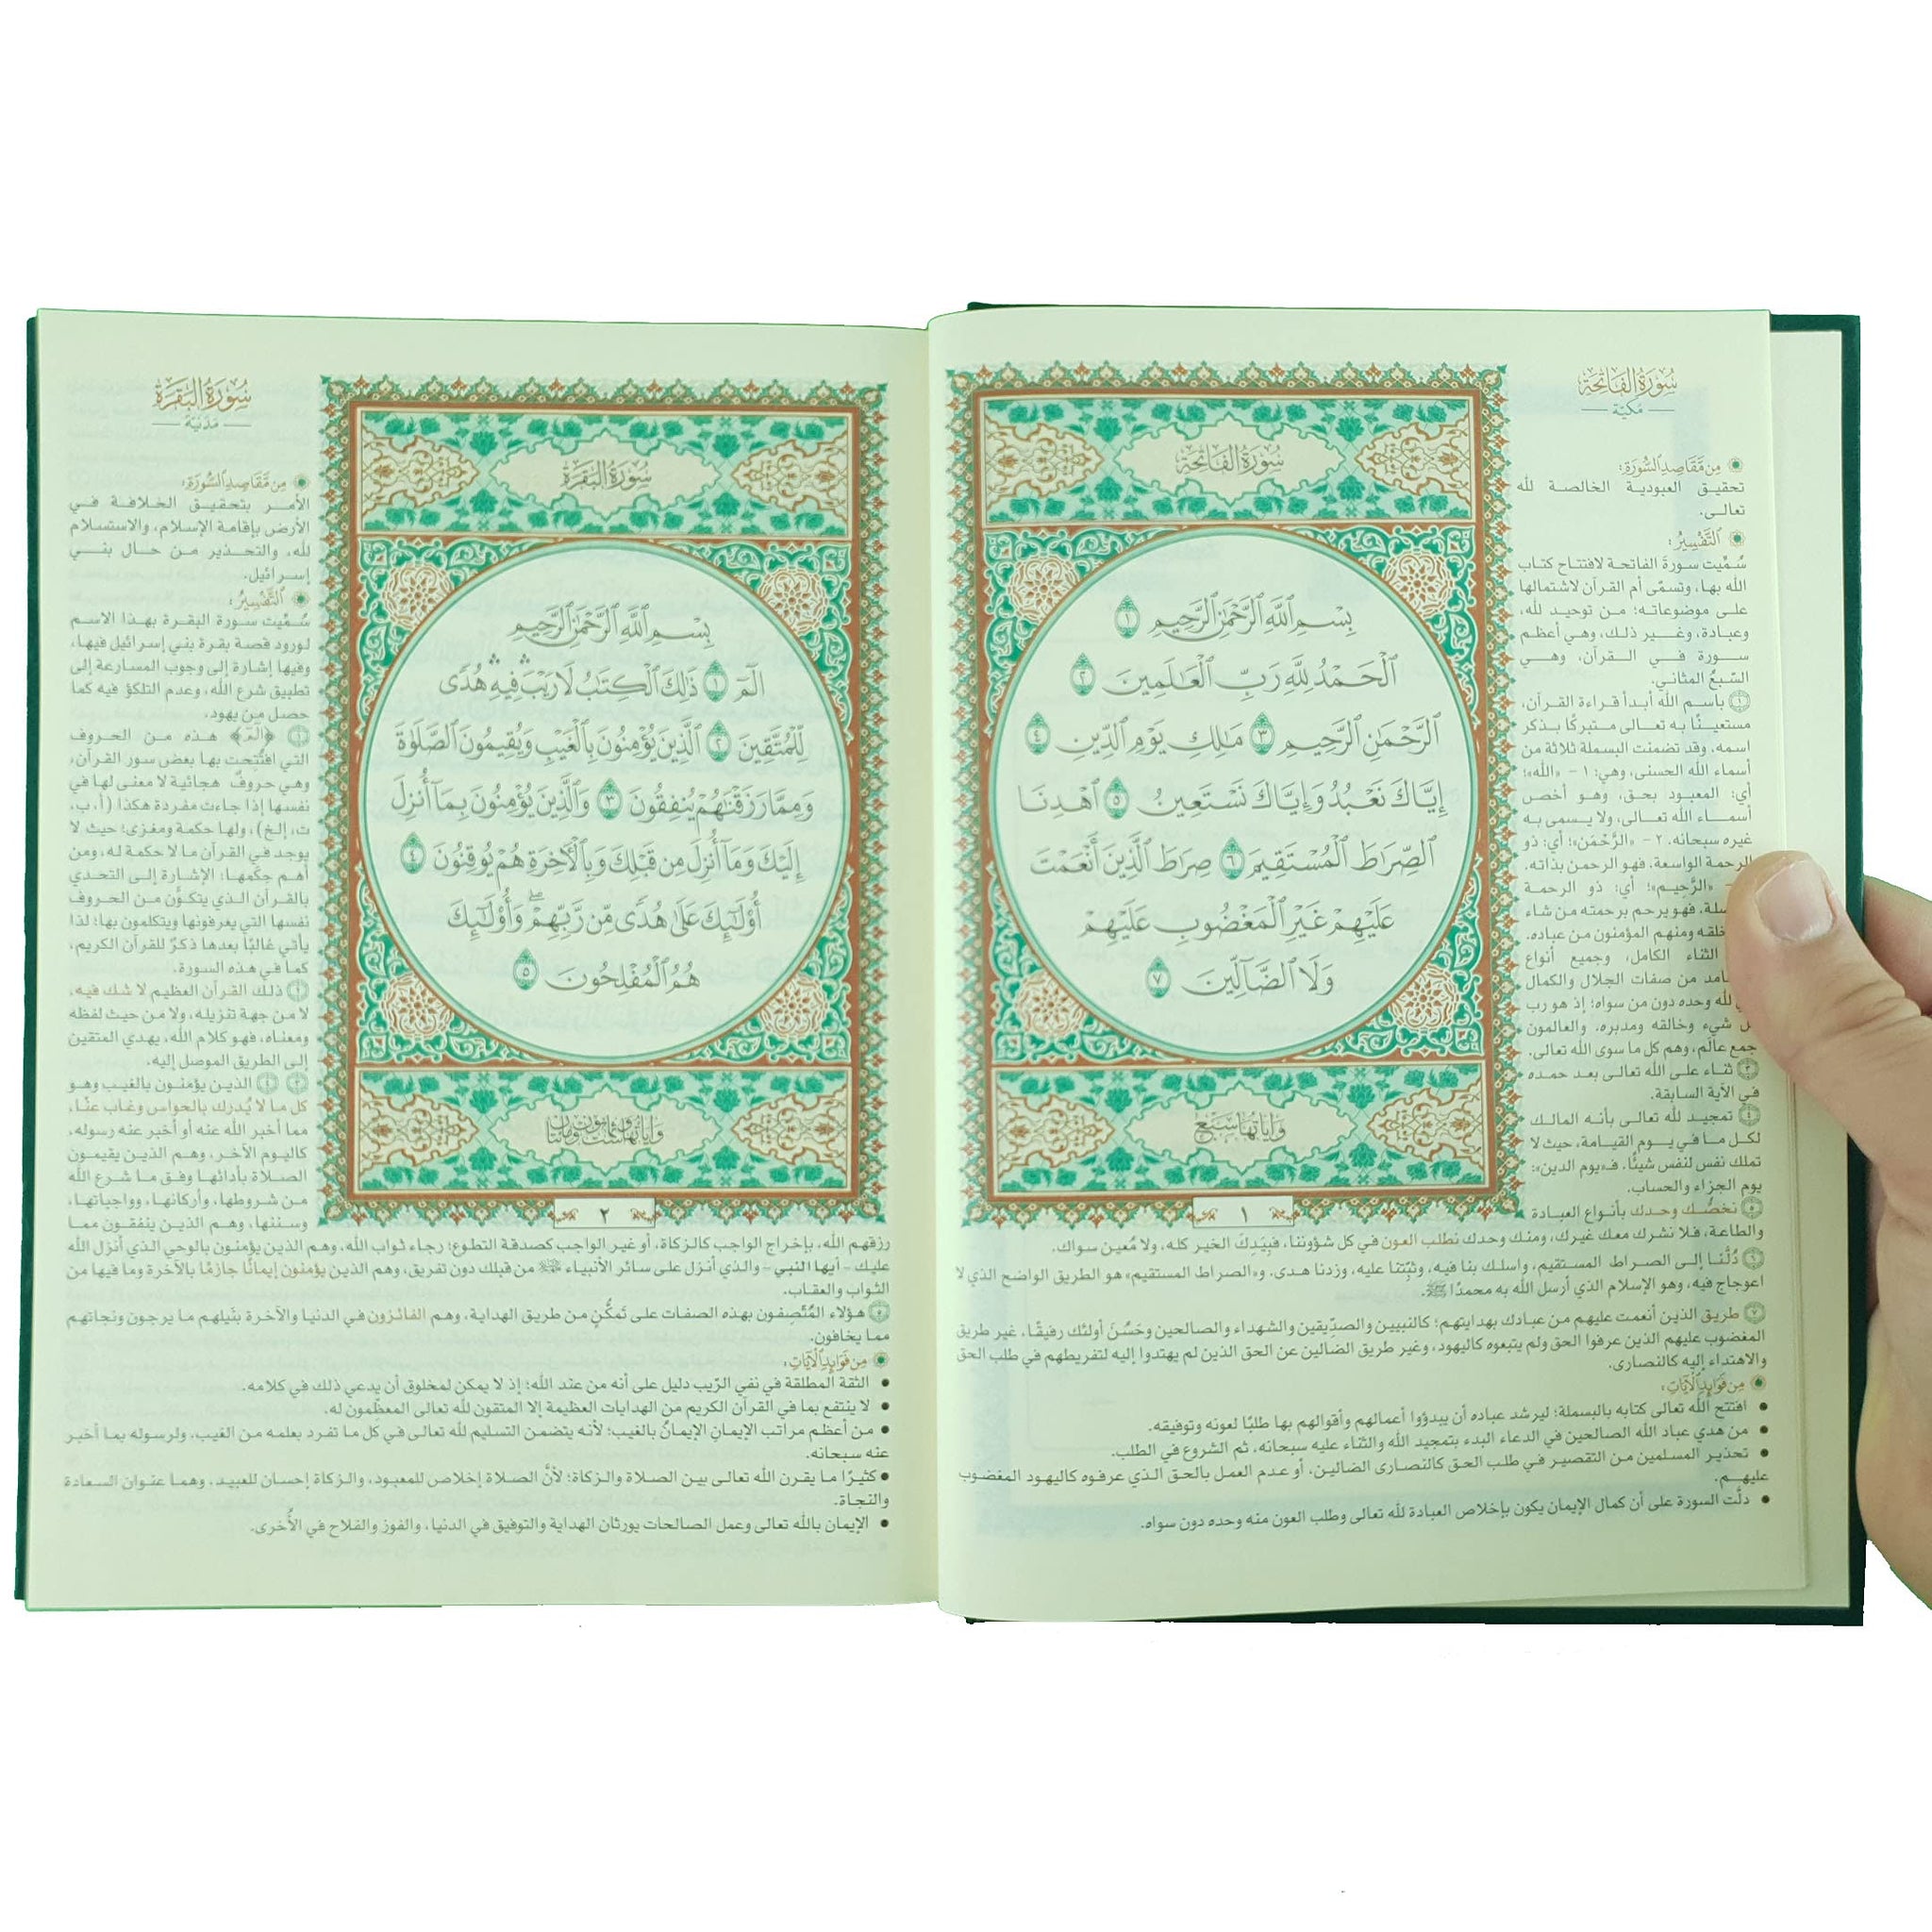 سُورَةُ الفَاتِحَة
مَكيّة
مِن مَّقَاصِدِ السُّورَةِ:
تحقيق العبودية الخالصة لله
تعالى.
التَّفْسِيرُ:
سُمِّيت سورة الفاتحة لافتتاح كتاب
الله بها، وتسمّى أم القرآن لاشتمالها
على موضوعاته؛ من توحيد لله،
وعبادة، وغير ذلك، وهي أعظم
سورة في القرآن، وهي
السّبعُ المثاني.
١ باسم الله أبدأ قراءة القرآن،
مستعينًا به تعالى متبركًا بذكر
اسمه. وقد تضمنت البسملة ثلاثة من
أسماء الله الحسنى، وهي: ١ - «الله»؛
أي: المعبود بحق، وهو أخص
أسماء الله تعالى، ولا يسمى به
غيره سبحانه. ٢ - «الرَّحْمَن»؛ أي: ذو
الرحمة الواسعة. فهو الرحمن بذاته.
- «الرَّحيم»؛ أي: ذو الرحمة
فهو يرحم برحمته من شاء
ومنهم المؤمنون من عباده.
الثناء الكامل، وجميع أنواع
من صفات الجلال والكمال
لله وحده دون من سواه؛ إذ هو رب
شيء وخالقه ومدبره. والعالمون
جمع عالَم، وهم كل ما سوى الله تعالى.
٣ ثناء على الله تعالى بعد حمده
في الآية السابقة.
٤ تمجيد لله تعالى بأنه المالك
لكل ما في يوم القيامة، حيث لا
تملك نفس لنفس شيئًا. فـ«يوم الدين»:
يوم الجزاء والحساب.
٥ نخصُّك وحدك بأنواع العبادة
والطاعة، فلا نشرك معك غيرك، ومنك وحدك نطلب العون في كل شؤوننا، فبِيَدِكَ الخير كله، ولا مُعين سواك.
٦ دُلَّنا إلى الصراط المستقيم، واسلك بنا فيه، وثبّتنا عليه، وزدنا هدى. و«الصراط المستقيم» هو الطريق الواضح الذي لا
اعوجاج فيه، وهو الإسلام الذي أرسل الله به محمدًا ﷺ.
٧ طريق الذين أنعمت عليهم من عبادك بهدايتهم؛ كالنبيين والصدِّيقين والشهداء والصالحين وحَسُنَ أولئك رفيقًا، غير طريق
المغضوب عليهم الذين عرفوا الحق ولم يتبعوه كاليهود، وغير طريق الضالين عن الحق الذين لم يهتدوا إليه لتفريطهم في طلب الحق
والاهتداء إليه كالنصارى.
مِن فَوَائِدِ الآيَاتِ:
• افتتح الله تعالى كتابه بالبسملة؛ ليرشد عباده أن يبدؤوا أعمالهم وأقوالهم بها طلبًا لعونه وتوفيقه.
• من هدي عباد الله الصالحين في الدعاء البدء بتمجيد الله والثناء عليه سبحانه، ثم الشروع في الطلب.
• تحذير المسلمين من التقصير في طلب الحق كالنصارى الضالين، أو عدم العمل بالحق الذي عرفوه كاليهود المغضوب
عليهم.
• دلَّت السورة على أن كمال الإيمان يكون بإخلاص العبادة لله تعالى وطلب العون منه وحده دون سواه.
سُورَةُ الفَاتِحَة
بِسْمِ ٱللَّهِ ٱلرَّحْمَٰنِ ٱلرَّحِيمِ ١
ٱلْحَمْدُ لِلَّهِ رَبِّ ٱلْعَٰلَمِينَ ٢
ٱلرَّحْمَٰنِ ٱلرَّحِيمِ ٣ مَٰلِكِ يَوْمِ ٱلدِّينِ ٤
إِيَّاكَ نَعْبُدُ وَإِيَّاكَ نَسْتَعِينُ ٥ ٱهْدِنَا
ٱلصِّرَٰطَ ٱلْمُسْتَقِيمَ ٦ صِرَٰطَ ٱلَّذِينَ أَنْعَمْتَ
عَلَيْهِمْ غَيْرِ ٱلْمَغْضُوبِ عَلَيْهِمْ
وَلَا ٱلضَّآلِّينَ ٧
وَآيَاتُهَا سَبْعٌ
١
سُورَةُ البَقَرَة
مَدَنيّة
مِن مَّقَاصِدِ السُّورَةِ:
الأمر بتحقيق الخلافة في
الأرض بإقامة الإسلام، والاستسلام
لله، والتحذير من حال بني
إسرائيل.
التَّفْسِيرُ:
سُمِّيت سورة البقرة بهذا الاسم
لورود قصة بقرة بني إسرائيل فيها،
وفيها إشارة إلى وجوب المسارعة إلى
تطبيق شرع الله، وعدم التلكؤ فيه كما
حصل من يهود.
١ ﴿الٓمٓ﴾ هذه من الحروف
التي افتُتِحت بها بعض سور القرآن،
وهي حروفٌ هجائية لا معنى لها في
نفسها إذا جاءت مفردة هكذا (أ، ب،
ت، إلخ)، ولها حكمة ومغزى؛ حيث لا
يوجد في القرآن ما لا حكمة له، ومن
أهم حِكَمها: الإشارة إلى التحدي
بالقرآن الذي يتكوَّن من الحروف
نفسها التي يعرفونها ويتكلمون بها؛ لذا
يأتي غالبًا بعدها ذكرٌ للقرآن الكريم،
كما في هذه السورة.
٢ ذلك القرآن العظيم لا شك فيه،
لا من جهة تنزيله، ولا من حيث لفظه
ومعناه، فهو كلام الله، يهدي المتقين
إلى الطريق الموصل إليه.
٣ ٤ الذين يؤمنون بالغيب وهو
كل ما لا يُدرك بالحواس وغاب عنّا،
مما أخبر الله عنه أو أخبر عنه رسوله،
كاليوم الآخر، وهم الذين يقيمون
الصلاة بأدائها وفق ما شرع الله
من شروطها، وأركانها، وواجباتها،
وسننها، وهم الذين ينفقون مما
رزقهم الله، بإخراج الواجب كالزكاة، أو غير الواجب كصدقة التطوع؛ رجاء ثواب الله، وهم الذين يؤمنون بالوحي الذي أنزل الله
عليك - أيها النبي - والذي أنزل على سائر الأنبياء ﷺ من قبلك دون تفريق، وهم الذين يؤمنون إيمانًا جازمًا بالآخرة وما فيها من
الثواب والعقاب.
٥ هؤلاء المُتَّصِفون بهذه الصفات على تَمكُّنٍ من طريق الهداية، وهم الفائزون في الدنيا والآخرة بنَيلهم ما يرجون ونجاتهم
مما يخافون.
مِن فَوَائِدِ الآيَاتِ:
• الثقة المطلقة في نفي الرّيب دليل على أنه من عند الله؛ إذ لا يمكن لمخلوق أن يدعي ذلك في كلامه.
• لا ينتفع بما في القرآن الكريم من الهدايات العظيمة إلا المتقون لله تعالى المعظِّمون له.
• من أعظم مراتب الإيمان الإيمانُ بالغيب؛ لأنه يتضمن التسليم لله تعالى في كل ما تفرد بعلمه من الغيب، ولرسوله بما أخبر
عنه سبحانه.
• كثيرًا ما يقرن الله تعالى بين الصلاة والزكاة؛ لأنَّ الصلاة إخلاص للمعبود، والزكاة إحسان للعبيد، وهما عنوان السعادة
والنجاة.
• الإيمان بالله تعالى وعمل الصالحات يورثان الهداية والتوفيق في الدنيا، والفوز والفلاح في الأُخرى.
سُورَةُ البَقَرَة
بِسْمِ ٱللَّهِ ٱلرَّحْمَٰنِ ٱلرَّحِيمِ
الٓمٓ ١ ذَٰلِكَ ٱلْكِتَٰبُ لَا رَيْبَۛ فِيهِۛ هُدًى
لِّلْمُتَّقِينَ ٢ ٱلَّذِينَ يُؤْمِنُونَ بِٱلْغَيْبِ وَيُقِيمُونَ ٱلصَّلَوٰةَ
وَمِمَّا رَزَقْنَٰهُمْ يُنفِقُونَ ٣ وَٱلَّذِينَ يُؤْمِنُونَ بِمَآ أُنزِلَ
إِلَيْكَ وَمَآ أُنزِلَ مِن قَبْلِكَ وَبِٱلْءَاخِرَةِ هُمْ يُوقِنُونَ ٤
أُو۟لَٰٓئِكَ عَلَىٰ هُدًى مِّن رَّبِّهِمْۖ وَأُو۟لَٰٓئِكَ
هُمُ ٱلْمُفْلِحُونَ ٥
وَآيَاتُهَا سِتٌّ وَثَمَانُونَ وَمِائَتَانِ
٢